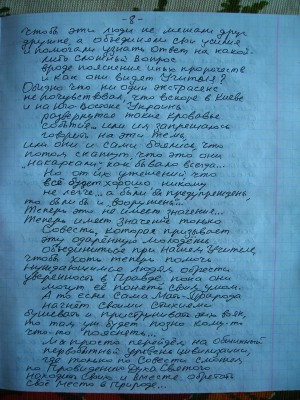 - 8 -
Чтобы эти люди не мешали друг
другу, а объединяли свои усилия
и помогали узнать ответ на какой-
либо сложный вопрос
вроде пояснения иных пророчеств
и как они видят Учителя?
Обидно что ни один экстрасенс
не почувствовал, что вскоре в Киеве
и на Юго-Востоке Украины
развернутся такие кровавые
события... или им запрещалось
говорить на эти темы
или они и сами боялись, что
потом скажут, что это они
"накаркали", как бывало всегда...
Но от их утешений, что
всё будет хорошо никому
не легче... а были бы предупреждены,
то были б и "вооружены"...
Теперь это не имеет значение...
Теперь имеет значение только
Совесть, которая призывает
эту одарённую молодёжь
объединиться при нашем Учителе,
чтобы хоть теперь помочь
нуждающимся людям обрести
уверенность в Правде пока они
могут её понять своим умом.
А то если Сама Мать-Природа
начнёт Своими Стихиями
бушевать и приструнивать всех вояк,
то там уж будет поздно кому-то
что-то "пояснять"...
Мы просто перейдём на обычный
первобытный уровень цивилизации,
где только по Совести
по Провидению Духа Святого
народы Свои и вместе обретать
своё место в Природе...